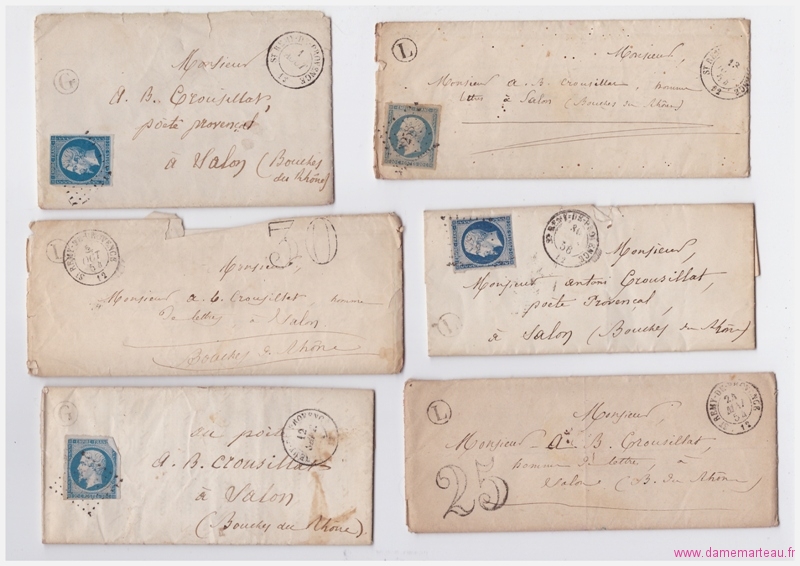 Monsieur
A. B. Crousillat,
poëte provençal
à Salon (Bouches
du Rhône)
G
1
Monsieur,
Monsieur A. B. Crousillat, homme
lettre à Salon (Bouches du Rhône)
L
13
54
Monsieur,
Monsieur A. B. Crousillat, homme
De lettres, à Salon.
Bouches du Rhône
ST REMY-DE-PROVENCE
3
OCT
54
12
30
Monsieur,
Monsieur Antoni Crousillat,
poëte Provençal,
à Salon (Bouches du Rhône)
ST REMY-DE-PROVENCE
56
12
au poëte
A. B. Crousillat
à Salon
(Bouches du Rhône)
G
12
EMPIRE FRANC
Monsieur,
Monsieur A. B. Crousillat,
homme d' lettre, à
Salon (B. du Rhône)
L
25
ST REMY-DE-PROVENCE
24
MAI
54
12
www.damemarteau.fr